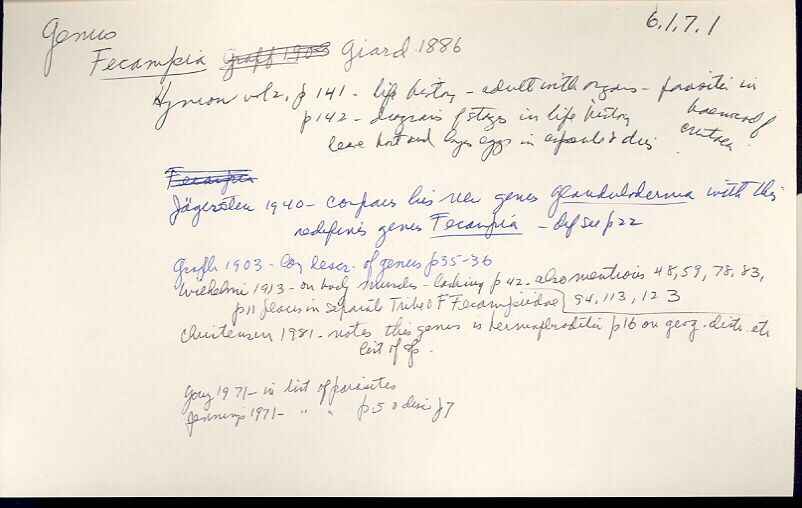 6.1.7.1
Genus
Fecampia Graff 1903 Giard 1886
Hyman vol 2, p 141 - life history - adult with organs - parasitic in
haemocoel of
p 142 - diagram of stages in life history
crustacea
leave host and lays eggs in capsule & dies
Fecampia
Jägersten 1940 - compares his new genus Glanduloderma with this
redefines genus Fecampia - def see p 22
Graff 1903 - long descr. of genus p 35-36
Wilhelmi 1913 - on body muscles - lacking p 42 - also mentions 48, 59, 78, 83,
p 11 places in separate Tribe OF Fecampiidae 94, 113, 123
Christensen 1981 - notes this genus is hermaphroditic p 16 on geog. distr. etc
list of sp.
1971 - in list of parasites
Jennings 1971 - " " p 5